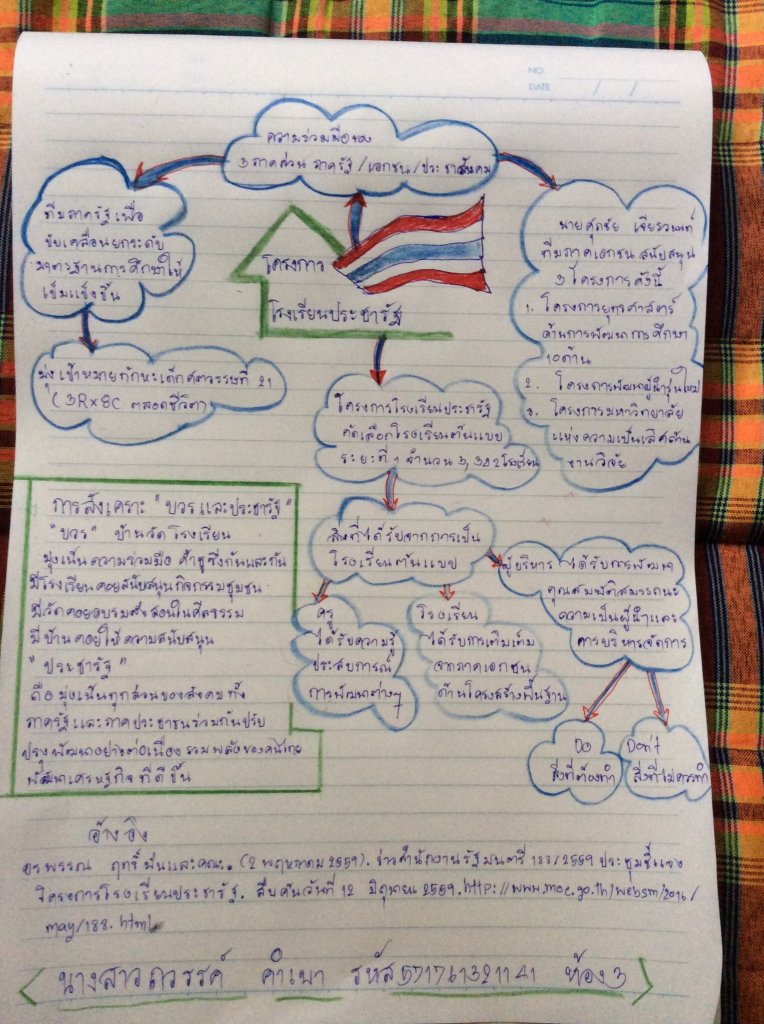 NO.
DATE / /
ความร่วมมือของ
3 ภาคส่วน ภาครัฐ/เอกชน/ประชาสังคม
ทีมภาครัฐเพื่อ
ขับเคลื่อนยกระดับ
มาตรฐานการศึกษาให้
เข้มแข็งขึ้น
มุ่งเป้าหมายทักษะเด็กศตวรรษที่ 21
(3R×8C ตลอดชีวิต)
โครงการ
โรงเรียนประชารัฐ
นายศุภชัย เจียรวนนท์
ทีมภาคเอกชน สนับสนุน
3 โครงการดังนี้
1. โครงการยุทธศาสตร์
ด้านการพัฒนาการศึกษา
10ด้าน
2. โครงการพัฒนาผู้นำรุ่นใหม่
3. โครงการมหาวิทยาลัย
แห่งความเป็นเลิศด้าน
งานวิจัย
โครงการโรงเรียนประชารัฐ
คัดเลือกโรงเรียนต้นแบบ
ระยะที่ 1 จำนวน 3,342โรงเรียน
สิ่งที่ได้รับจากการเป็น
โรงเรียนต้นแบบ
ครู
ได้รับความรู้
ประสบการณ์
การพัฒนาต่างๆ
โรงเรียน
ได้รับการเติมเต็ม
จากภาคเอกชน
ด้านโครงสร้างพื้นฐาน
ผู้บริหาร ได้รับการพัฒนา
คุณสมบัติสมรรถนะ
ความเป็นผู้นำและ
การบริหารจัดการ
Do
สิ่งที่ต้องทำ
Don't
สิ่งที่ไม่ควรทำ
การสังเคราะ "บวรและประชารัฐ"
"บวร" บ้านวัดโรงเรียน
มุ่งเน้นความร่วมมือ ค้ำชูซึ่งกันและกัน
มีโรงเรียนคอยสนับสนุนกิจกรรมชุมชน
มีวัดคอยอบรมสั่งสอนในศีลธรรม
มีบ้านคอยให้ความสนับสนุน
"ประชารัฐ"
คือ มุ่งเน้นทุกส่วนของสังคม ทั้ง
ภาครัฐและภาคประชาชนร่วมกันปรับ
ปรุงพัฒนาอย่างต่อเนื่อง รวมพลังของคนไทย
พัฒนาเศรษฐกิจ ที่ดีขึ้น
อ้างอิง
อรพรรณ ฤทธิ์มั่นและคณะ. (2 พฤษภาคม 2559). ข่าวสำนักงานรัฐมนตรี 188/2559 ประชุมชี้แจง
โครงการโรงเรียนประชารัฐ. สืบค้นวันที่ 12 มิถุนายน 2559.http://www.moe.go.th/websm/2016/
may/188.html
นางสาวภวรรค์ คำเพา รหัส 57176132141 ห้อง 3